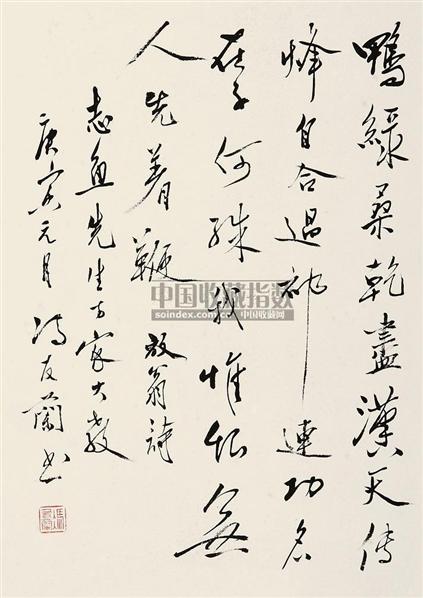 鴨綠桑乾盡漢天传
烽自合過祁連功名
在子何殊我惟恨無
人先着鞭 放翁詩
志魚先生方家大教
庚寅元月馮友蘭书
中国收藏指数
soindex.com 中国收藏网